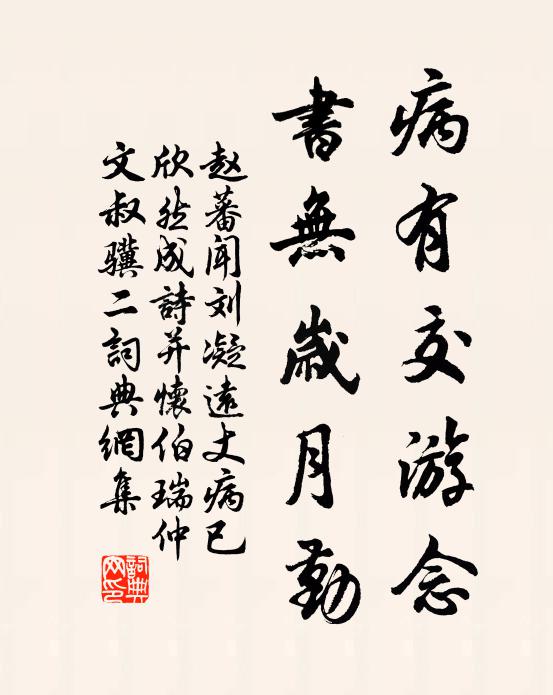 病有交游念
書無歲月勤
赵蕃闻刘凝遠丈病已
欣然成詩并懷伯瑞仲
文叔骥二詞典網集
詞典网印